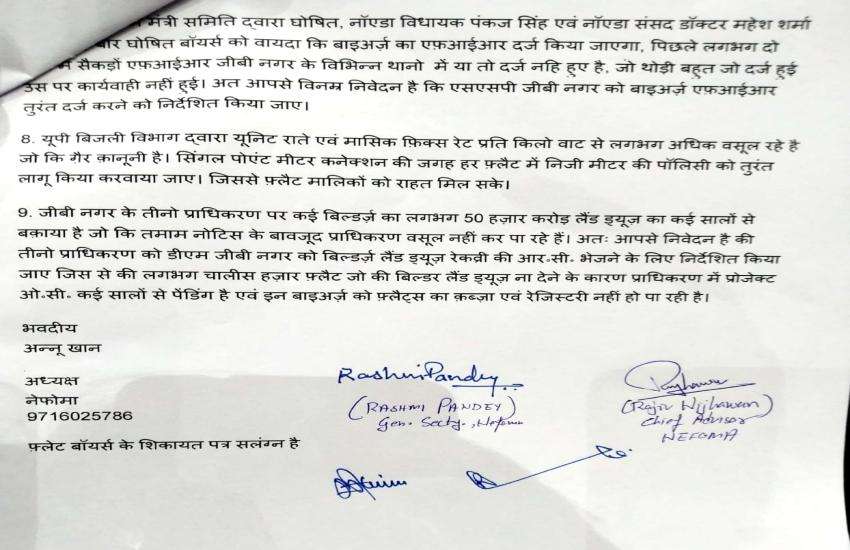 मंत्री समिति द्वारा घोषित, नॉएडा विधायक पंकज सिंह एवं नॉएडा संसद डॉक्टर महेश शर्मा
घोषित बॉयर्स को वायदा कि बाइअर्ज़ का एफ़आईआर दर्ज किया जाएगा, पिछले लगभग दो
सैकड़ों एफ़आईआर जीबी नगर के विभिन्न थानो में या तो दर्ज नहि हुए है, जो थोड़ी बहुत जो दर्ज हुई
उस पर कार्यवाही नहीं हुई। अत आपसे विनम्र निवेदन है कि एसएसपी जीबी नगर को बाइअर्ज़ एफ़आईआर
तुरंत दर्ज करने को निर्देशित किया जाए।
8. यूपी बिजली विभाग द्वारा यूनिट राते एवं मासिक फ़िक्स रेट प्रति किलो वाट से लगभग अधिक वसूल रहे है
जो कि गैर क़ानूनी है। सिंगल पोएंट मीटर कनेक्शन की जगह हर फ़्लैट में निजी मीटर की पॉलिसी को तुरंत
लागू किया करवाया जाए। जिससे फ़्लैट मालिकों को राहत मिल सके।
9. जीबी नगर के तीनो प्राधिकरण पर कई बिल्डर्ज़ का लगभग 50 हज़ार करोड़ लैंड ड्यूज़ का कई सालों से
बक़ाया है जो कि तमाम नोटिस के बावजूद प्राधिकरण वसूल नहीं कर पा रहे हैं। अतः आपसे निवेदन है की
तीनो प्राधिकरण को डीएम जीबी नगर को बिल्डर्ज़ लैंड ड्यूज़ रेकव्री की आर॰सी॰ भेजने के लिए निर्देशित किया
जाए जिस से की लगभग चालीस हज़ार फ़्लैट जो की बिल्डर लैंड ड्यूज़ ना देने के कारण प्राधिकरण में प्रोजेक्ट
ओ॰सी॰ कई सालों से पेंडिंग है एवं इन बाइअर्ज़ को फ़्लैट्स का क़ब्ज़ा एवं रेजिस्टरी नहीं हो पा रही है।
भवदीय
अन्नू खान
अध्यक्ष
नेफोमा
9716025786
फ़्लेट बॉयर्स के शिकायत पत्र सलंग्न है
Rashmi Pandey
(RASHMI PANDEY)
Gen. Secty., Nefoma
(Rajiv Nijhawan)
Chief Advisor
NEFOMA